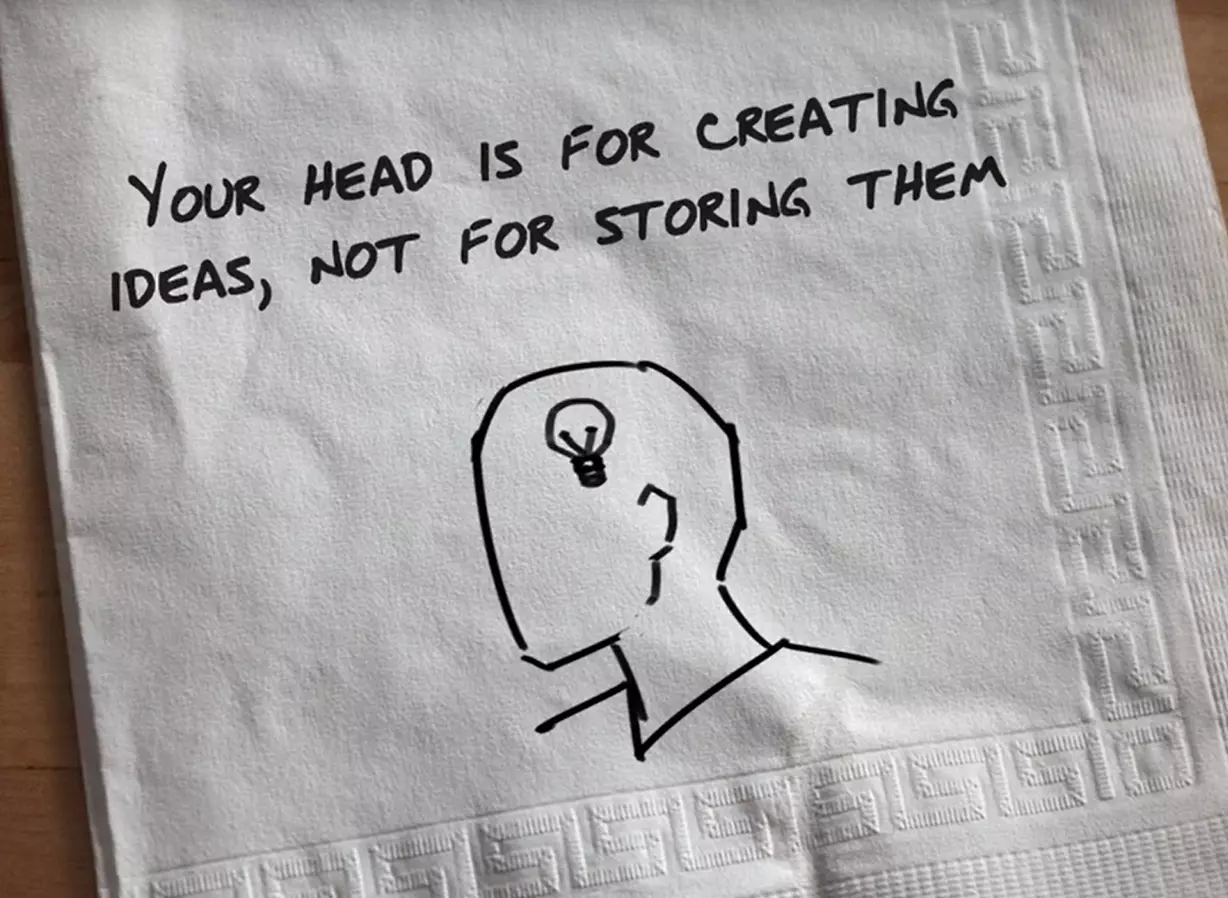 YOUR HEAD IS FOR CREATING
IDEAS, NOT FOR STORING THEM